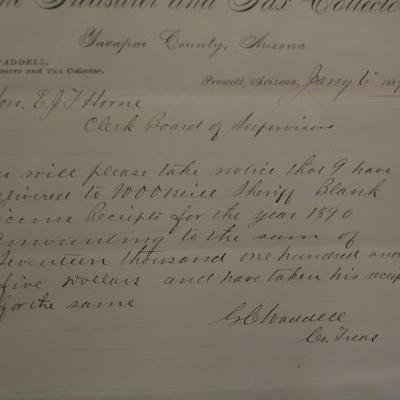 he Treasurer and Tax Collecto
Yavapai County, Arizona
WADDELL,
surer and Tax Collector.
Prescott, Arizona, Jany 6 188
Hon. E.J.F. Horne
Clerk Board of Supervisors
ou will please take notice that I have
elivered to W O O'Neill Sheriff Blank
icense Receipts for the year 1890
amounting to the sum of
Seventeen thousand one hundred and
five Dollars and have taken his receip
for the same
G C Waddell
Co. Treas